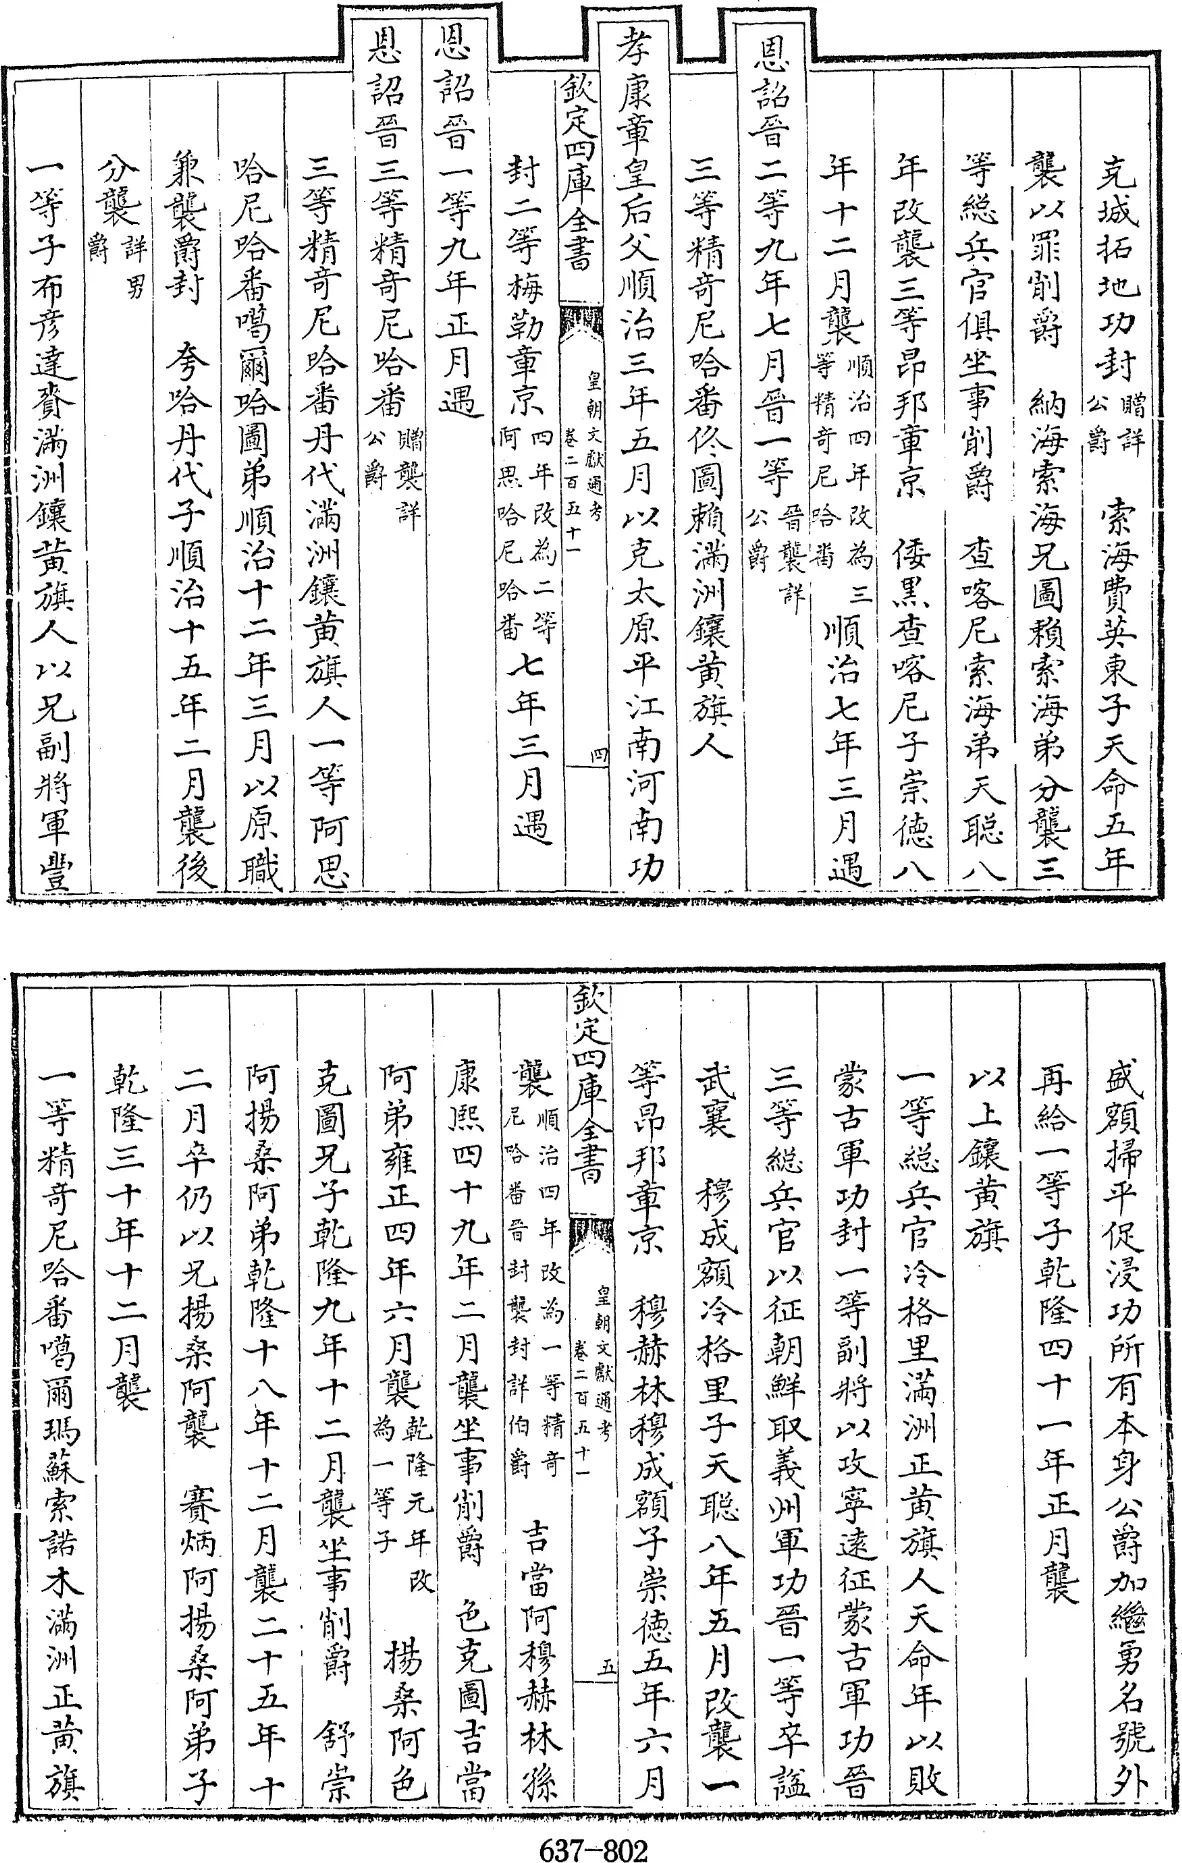 克城拓地功封贈詳公爵　索海費英東子天命五年
襲以罪削爵　納海索海兄圖賴索海弟分襲三
等緫兵官俱坐事削爵　查喀尼索海弟天聰八
年改襲三等昂邦章京　倭黑查喀尼子崇德八
年十二月襲順治四年改為三等精奇尼哈番　順治七年三月遇
恩詔晉二等九年七月晉一等晉襲詳公爵
三等精奇尼哈番佟圖賴滿洲鑲黃旗人
孝康章皇后父順治三年五月以克太原平江南河南功
欽定四庫全書
皇朝文獻通考
卷二百五十一
四
封二等梅勒章京四年改為二等阿思哈尼哈番七年三月遇
恩詔晉一等九年正月遇
恩詔晉三等精奇尼哈番贈襲詳公爵
三等精奇尼哈番丹代滿洲鑲黃旗人一等阿思
哈尼哈番噶爾哈圖弟順治十二年三月以原職
兼襲爵封　夸哈丹代子順治十五年二月襲後
分襲詳男爵
一等子布彥達賚滿洲鑲黃旗人以兄副將軍豐
盛額掃平促浸功所有本身公爵加繼勇名號外
再給一等子乾隆四十一年正月襲
以上鑲黃旗
一等緫兵官冷格里滿洲正黃旗人天命年以敗
蒙古軍功封一等副將以攻寧遠征蒙古軍功晉
三等緫兵官以征朝鮮取義州軍功晉一等卒諡
武襄　穆成額冷格里子天聰八年五月改襲一
等昂邦章京　穆赫林穆成額子崇德五年六月
欽定四庫全書
皇朝文獻通考
卷二百五十一
五
襲順治四年改為一等精奇尼哈番晉封襲封詳伯爵　吉當阿穆赫林孫
康熙四十九年二月襲坐事削爵　色克圖吉當
阿弟雍正四年六月襲乾隆元年改為一等子　揚桑阿色
克圖兄子乾隆九年十二月襲坐事削爵　舒崇
阿揚桑阿弟乾隆十八年十二月襲二十五年十
二月卒仍以兄揚桑阿襲　賽炳阿揚桑阿弟子
乾隆三十年十二月襲
一等精奇尼哈番噶爾瑪蘇索諾木滿洲正黃旗
637-802